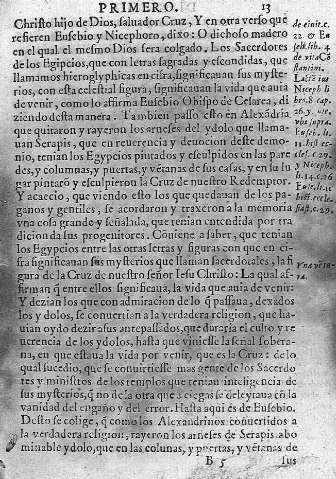 PRIMERO. 13
Christo hijo de Dios, saluador Cruz, Y en otra verso que
refieren Eusebio y Nicephoro, dixo: O dichoso madero
en el qual el mesmo Dios sera colgado. Los Sacerdotes
de los Egipcios, que con letras sagradas y escundidas, que
llamamos hieroglyphicas en cifra, significauan sus myste
rios, con esta celestial figura, significauan la vida que auia
de venir, como lo affirma Eusebio Obispo de Cesarea, di
ziendo desta manera. Tambien passo esto en Alexãdria
que quitaron y rayeron los arneses del ydolo que llama-
uan Serapis, que en reuerencia y deuocion deste demo-
nio, tenian los Egypcios pintados y esculpidos en las pare
des, y columnas, y puertas, y vẽtanas de sus casas, y en su lu
gar pintarõ y esculpieron la Cruz de nuestro Redemptor.
Y acaecio, que viendo esto los que quedauan de los pa-
ganos y gentiles, se acordaron y traxeron a la memoria
vna cosa grande y señalada, que tenian entendida por tra
dicion de sus progenitores. Conuiene a saber, que tenian
los Egypcios entre las otras letras y figuras con que en ci-
fra significauan sus mysterios que llaman sacerdotales, la fi
gura de la Cruz de nuestro señor Iesu Christo: La qual af-
firman q̃ entre ellos significaua, la vida que auia de venir:
Y dezian los que con admiracion de lo q̃ passaua, dexados
los ydolos, se conuertian a la verdadera religion, que ha-
uian oydo dezir a sus antepassados, que duraria el culto y re
uerencia de los ydolos, hasta que viniesse la señal sobera-
na, en que estaua la vida por venir, que es la Cruz: de lo
qual sucedio, que se conuirtiesse mas gente de los Sacerdo
tes y ministros de los templos que tenian inteligencia de
sus mysterios, q̃ no de la otra que a ciegas se deleytaua cõ la
vanidad del engaño y del error. Hasta aqui es de Eusebio.
Desto se colige, q̃ como los Alexandrinos conuertidos a
la verdadera religion, rayeron los arneses de Serapis abo
minable ydolo, que en las colunas, y puertas, y vẽtanas de
B 5 sus